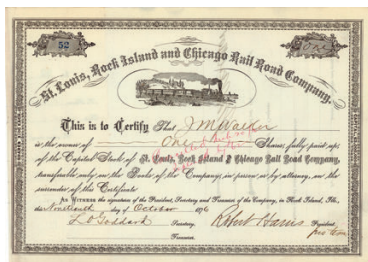 52
One
St. Louis, Rock Island and Chicago Rail Road Company.
This is to Certify That J M Walker
is the owner of One Shares, fully paid up,
of the Capital Stock of St. Louis, Rock Island & Chicago Rail Road Company,
transferable only on the Books of the Company, in person or by attorney, on the
surrender of this Certificate
In Witness the signatures of the President, Secretary and Treasurer of the Company, at Rock Island, Ills.,
this Nineteenth day of October 1876
L O Goddard Secretary, Robert Harris President,
Treasurer.